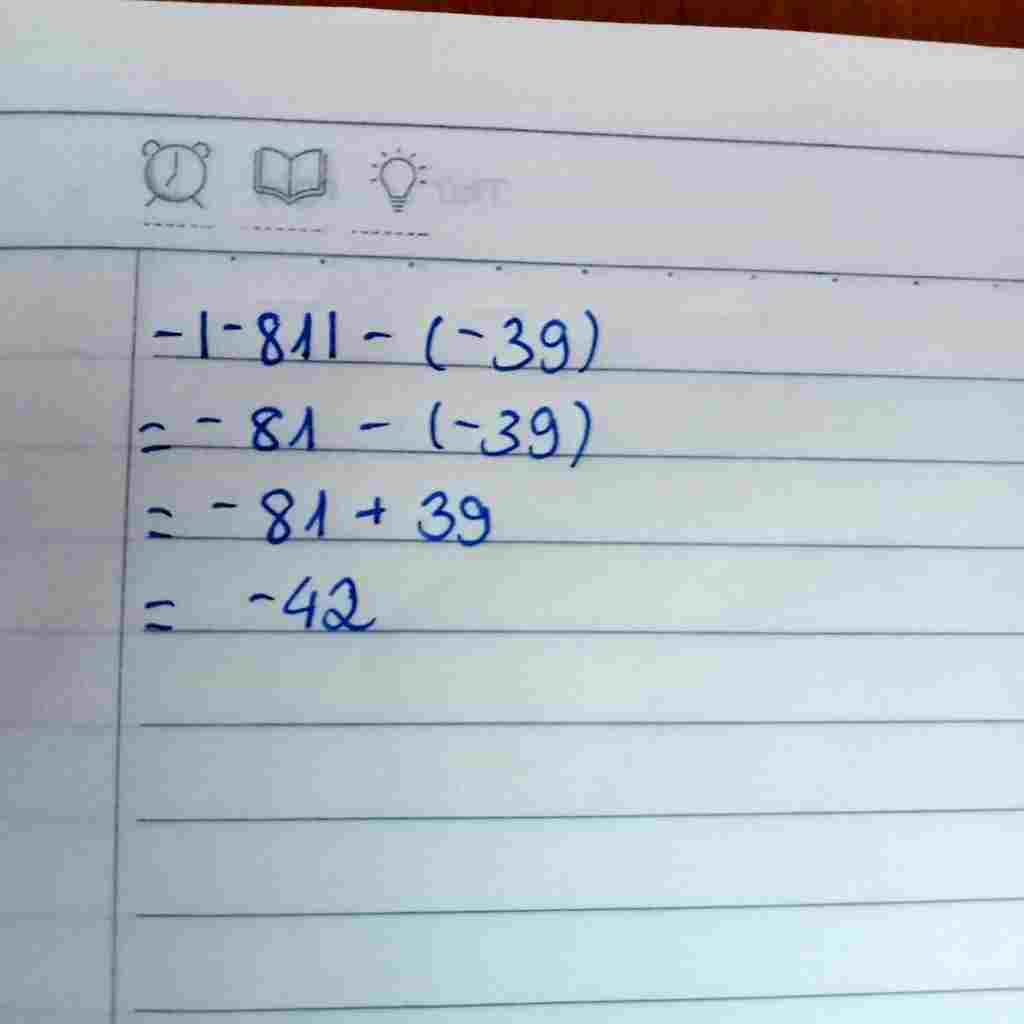 -|-81|-(-39)
= - 81 - (-39)
= - 81 + 39
= -42